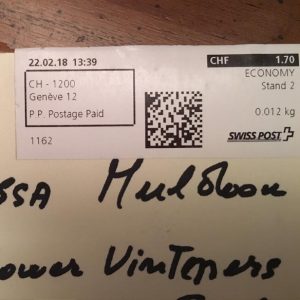 22.02.18 13:39
CHF 1.70
CH - 1200
Genève 12
P.P. Postage Paid
1162
ECONOMY
Stand 2
0.012 kg
SWISS POST
SSA Muldoon
ower Vinters